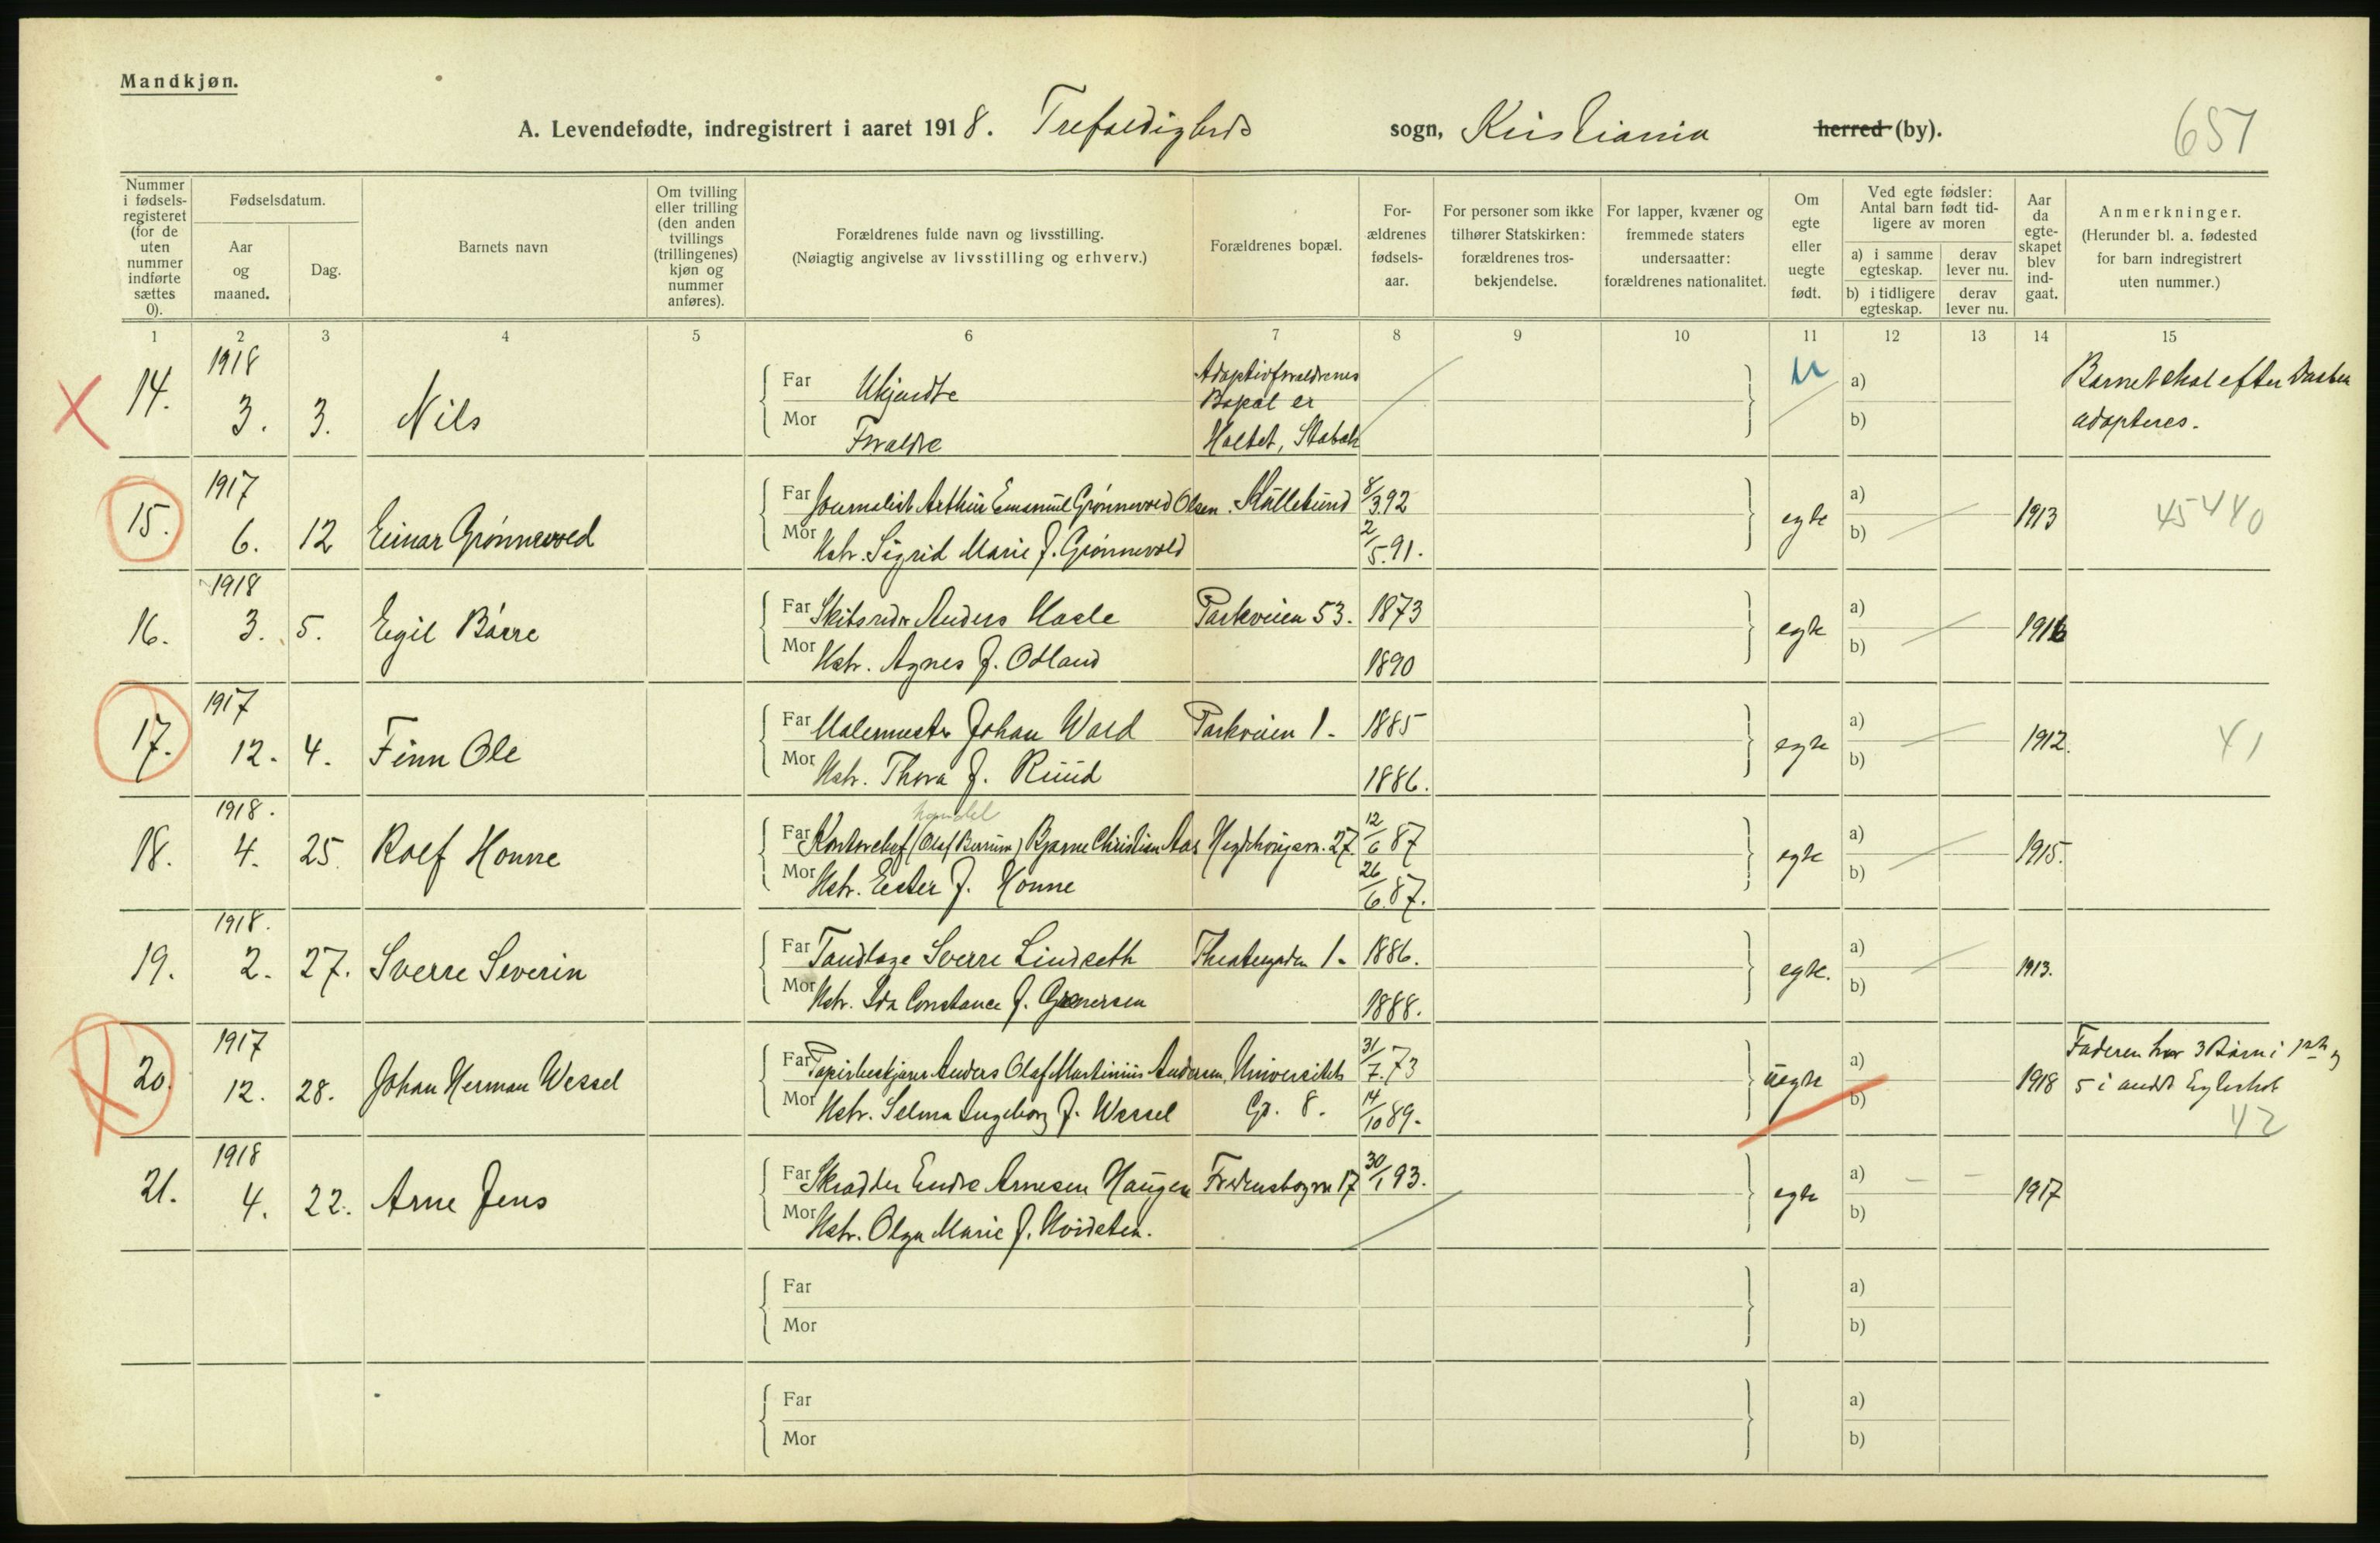 Mandkjøn.
A. Levendefødte, indregistrert i aaret 1918. Trefoldigheds sogn, Kristiania herred (by).
651
Nummer i fødsels-registeret (for de uten nummer indførte sættes 0).
Fødselsdatum.
Aar og maaned.
Dag.
Barnets navn
Om tvilling eller trilling (den anden tvillings (trillingenes) kjøn og nummer anføres).
Forældrenes fulde navn og livsstilling.
(Nøiagtig angivelse av livsstilling og erhverv.)
Forældrenes bopæl.
For-ældrenes fødsels-aar.
For personer som ikke tilhører Statskirken: forældrenes tros-bekjendelse.
For lapper, kvæner og fremmede staters undersaatter: forældrenes nationalitet.
Om egte eller uegte født.
Ved egte fødsler: Antal barn født tid-ligere av moren
a) i samme egteskap.
derav lever nu.
b) i tidligere egteskap.
derav lever nu.
Aar da egte-skapet blev ind-gaat.
Anmerkninger.
(Herunder bl. a. fødested for barn indregistrert uten nummer.)
1 2 3 4 5 6 7 8 9 10 11 12 13 14 15
14. 1918 3. 3. Nils
Far Ukjendte
Mor Forældre
Adoptivforældrenes
Bopæl er
Holtet, Stabæk
u a) b)
Barnet skal efter Daaben
adopteres.
15. 1917 6. 12 Einar Grønnevold
Far Journalist Arthur Emanuel Grønnevold Olsen. 8/3 92
Mor Hstr. Sigrid Marie f. Grønnevold 2/5. 91.
egte a) b) 1913 45440
16. 1918 3. 5. Egil Børre
Far Anders Hasle Parkveien 53. 1873
Mor Hstr. Agnes f. Odland 1890
egte a) b) 1916
17. 1917 12. 4. Finn Ole
Far Malermester Johan Wold Parkveien 1. 1885
Mor Hstr. Thora f. Ruud 1886.
egte a) b) 1912. 41
18. 1918. 4. 25. Rolf Honne
handel
Far Kontorchef (Olaf Berrum) Bjarne Christian Aas 27. 12/6 87
Mor Hstr. Ester f. Honne 26/6. 87.
egte a) b) 1915.
19. 1918. 2. 27. Sverre Severin
Far Tandlæge Sverre Lindseth Theatergaden 1. 1886.
Mor Hstr. Ida Constance f. Grenersen 1888.
egte. a) b) 1913.
20. 1917 12. 28. Johan Herman Wessel
Far Anders Olaf Martinius Andersen, Universitets 31/7. 73
Mor Hstr. Selma Ingeborg f. Wessel Gt. 8. 14/10 89.
uegte a) b) 1918
Faderen har 3 Børn i 1ste og
5 i andet Egteskab
42
21. 1918 4. 22. Arne Jens
Far Skrædder Endre Arnesen Haugen Fredensborgvn 17 30/1 93.
Mor Hstr. Olga Marie f. Hvidsten.
egte a) b) 1917
Far
Mor
a)
b)
Far
Mor
a)
b)